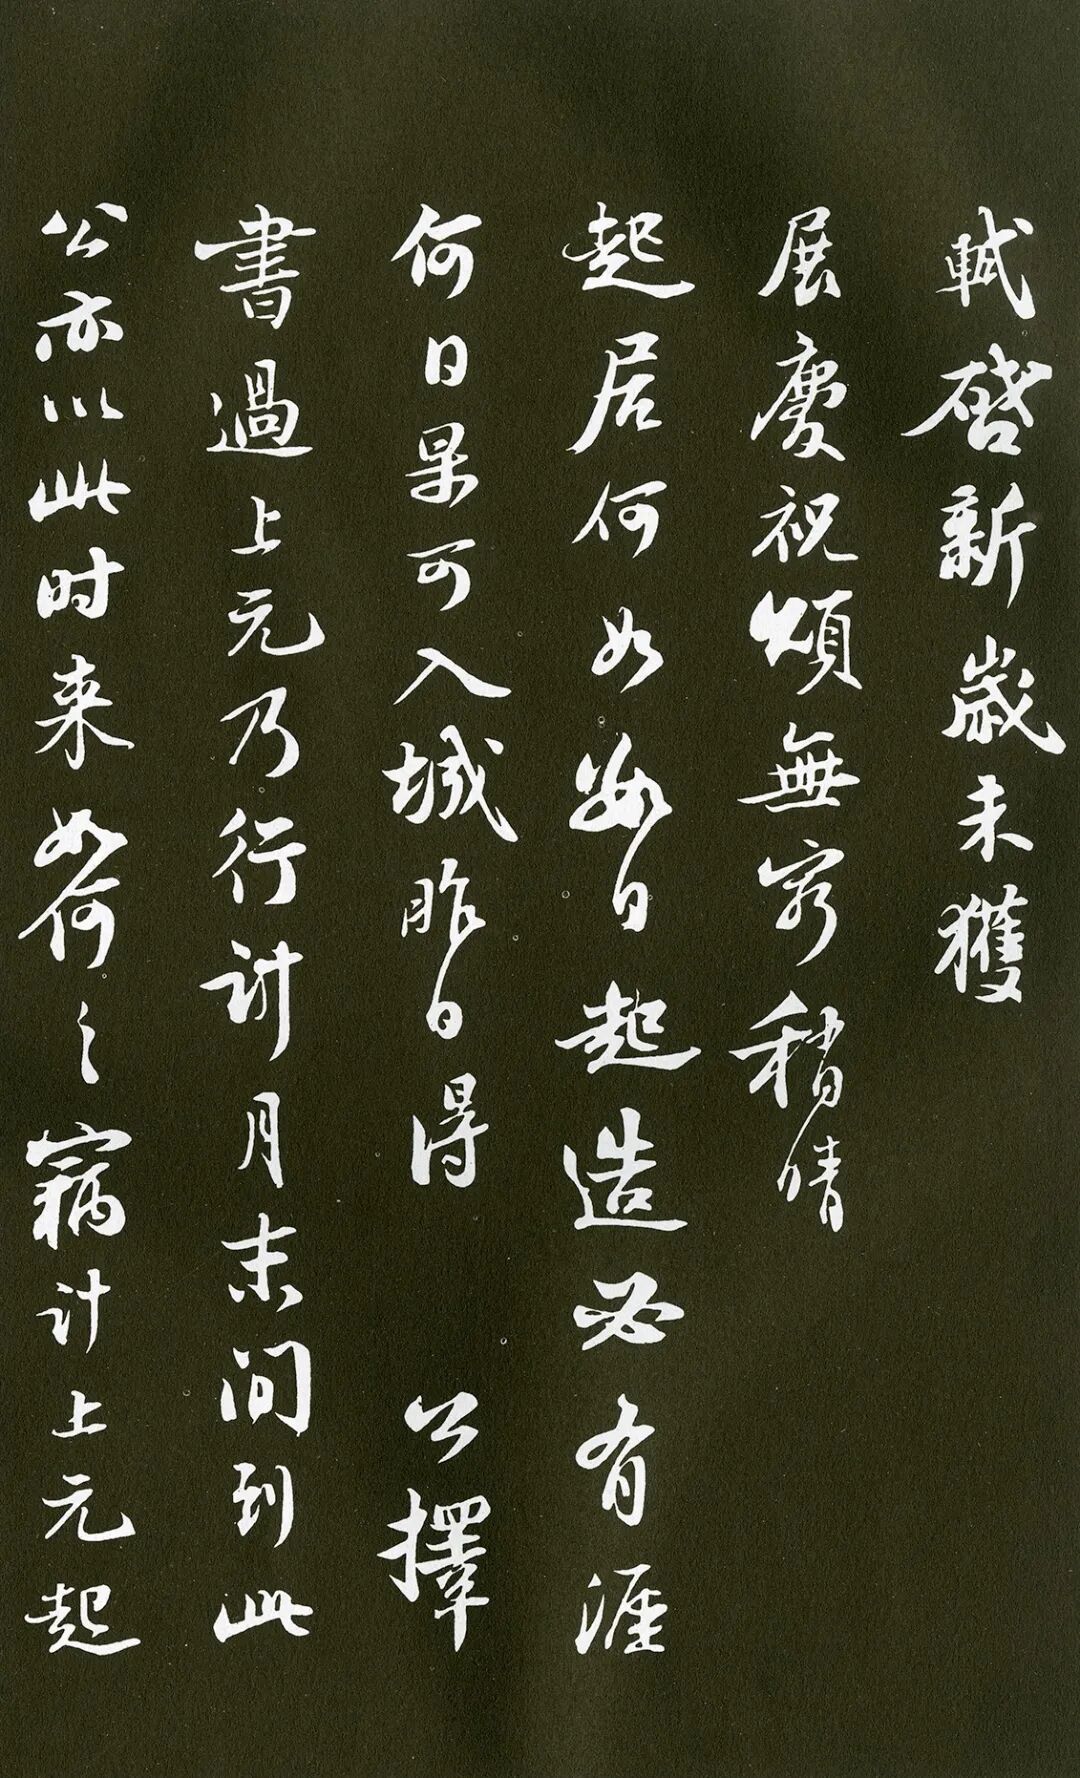 軾啓新歲未獲
展慶祝頌無窮稍晴
起居何如數日起造必有涯
何日果可入城昨日得公擇
書過上元乃行計月末間到此
公亦以此时来如何之竊计上元起